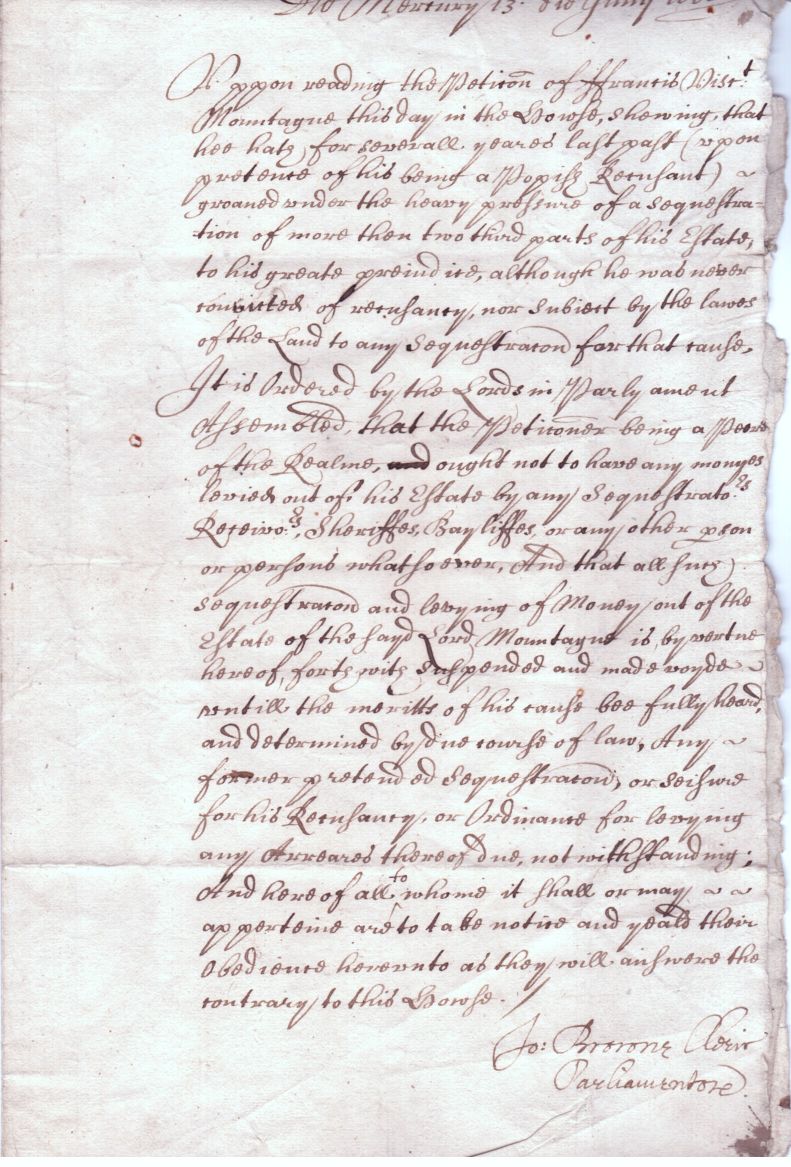 Die Mercurij 13 die Junij
Vppon reading the Peticōn of ffrancis Visct
Mountague this day in the Howse, shewing, that
hee hath for severall yeares last past (vpon
pretence of his being a Popish Recusant) ~
groaned vnder the heavy pressure of a sequestra-
-tion of more then two third parts of his Estate,
to his greate preiudice, although he was never
convicted of recusancy, nor subiect by the lawes
of the Land to any Sequestracōn for that cause,
It is Ordered by the Lords in Parlyament
Assembled, that the Peticoner being a Peere
of the Realme, and ought not to have any monyes
levied out of his Estate by any Sequestrato:rs
Receivo:rs, Sheriffes, Bayliffes, or any other pson
or persons whatsoever, And that all such
sequestracōn and levying of Money out of the
Estate of the sayd Lord Mountague is, by vertue
hereof, forthwith suspended and made voyde ~
vntill the meritts of his cause bee fully heard,
and determined by due course of law, Any ~
former pretended Sequestracōn, or seisure
for his Recusancy, or Ordinance for levying
any Arreares thereof due, notwithstanding;
And hereof all to whome it shall or may ~ ~
apperteine are to take notice and yeald their
Obedience herevnto as they will answere the
contrary to this Howse.
Jo: Browne Cleric
Parliamentorū